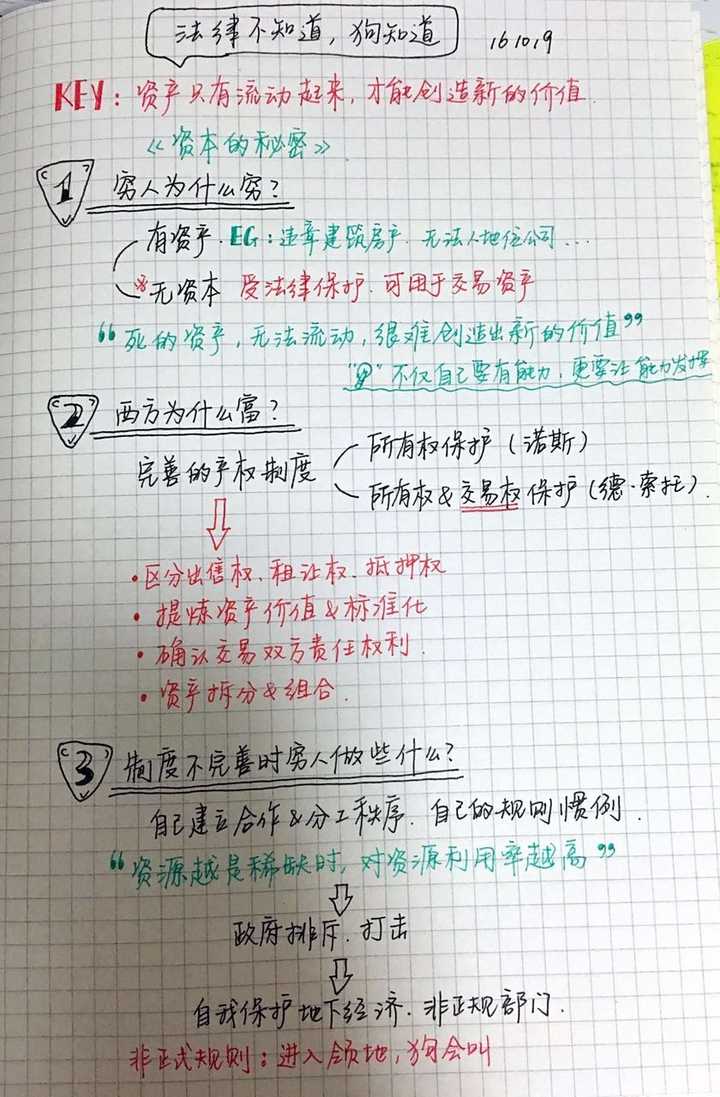 法律不知道,狗知道 161019
KEY:资产只有流动起来,才能创造新的价值.
《资本的秘密》
1 穷人为什么穷?
有资产.EG:违章建筑房产.无法人地位公司...
※无资本 受法律保护.可用于交易资产
“死的资产,无法流动,很难创造出新的价值”
"不仅自己要有能力,更要让能力发挥
2 西方为什么富?
所有权保护(诺斯)
完善的产权制度
所有权&交易权保护(德·索托).
·区分出售权、租让权、抵押权
·提炼资产价值&标准化
·确认交易双方责任权利.
·资产拆分&组合.
3 制度不完善时穷人做些什么?
自己建立合作&分工秩序.自己的规则惯例.
“资源越是稀缺时,对资源利用率越高”
政府排斥.打击
自我保护地下经济.非正规部门.
非正式规则:进入领地,狗会叫